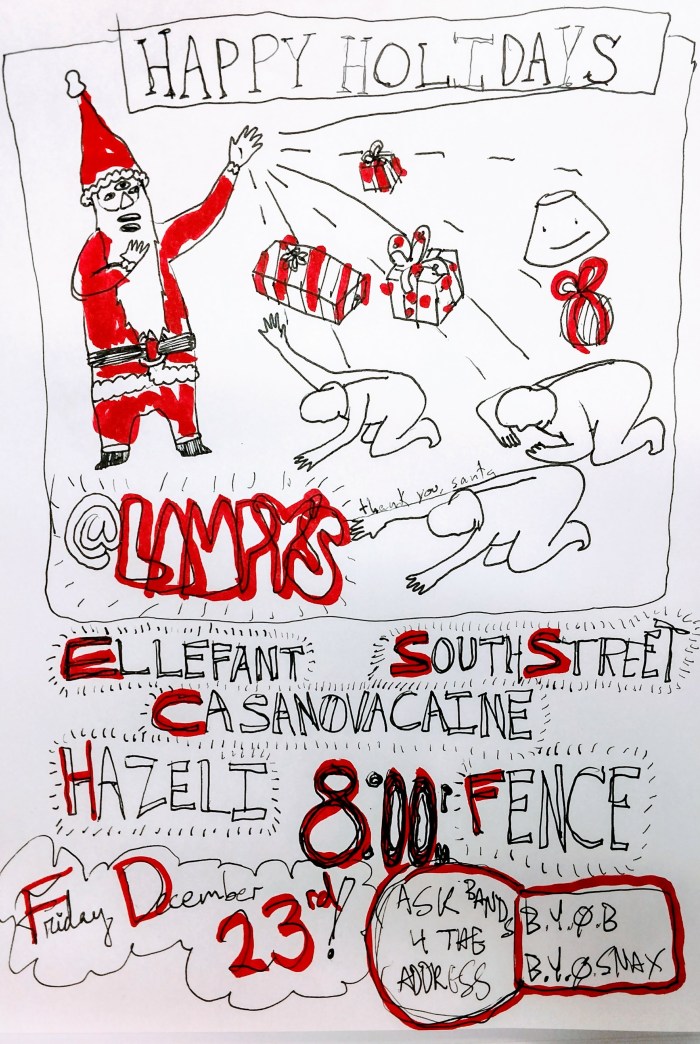 HAPPY HOLIDAYS
thank you, santa
@LAMPY'S
ELLEFANT
SOUTH STREET
CASANOVACAINE
HAZELI
8:00 PM
FENCE
Friday December
23rd!
ASK BANDS
4 THE
ADDRESS
B.Y.Ø.B
B.Y.Ø.SMAX